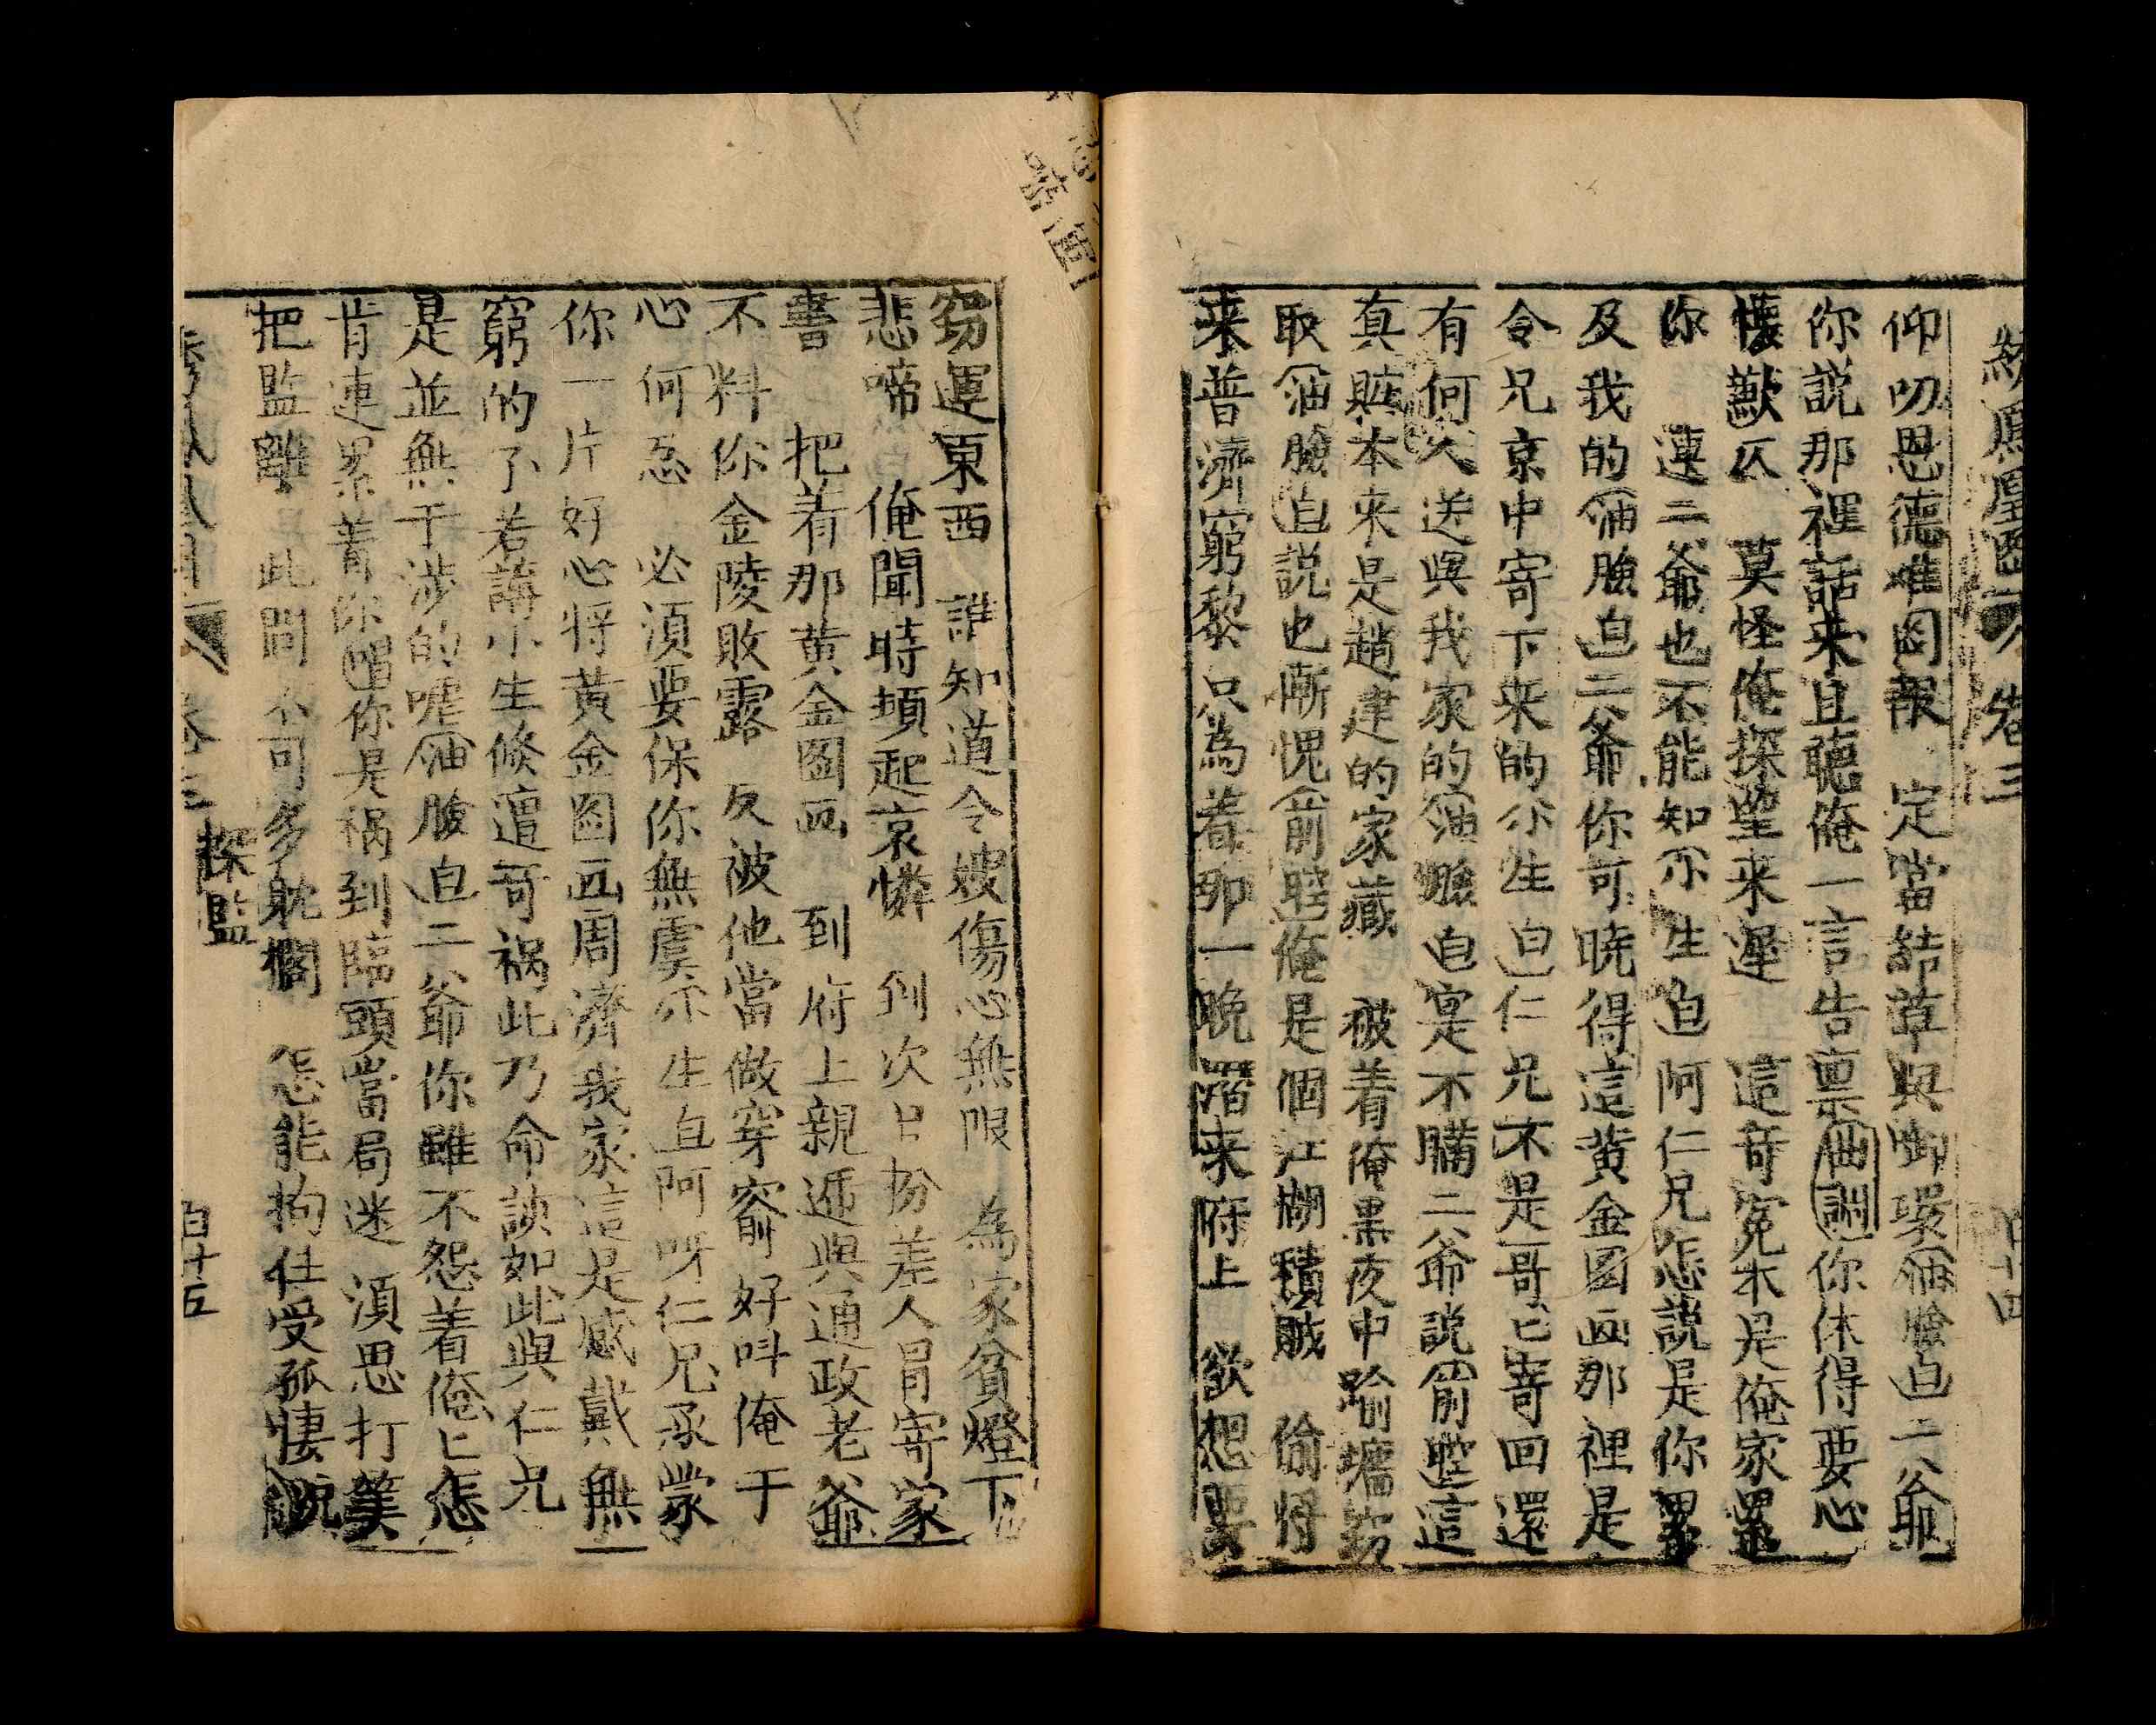 卷三
仰叨恩德难图報 定當結草與啣環(油臉白)二爺
你説那裡話来且聽俺一言告禀(曲調)你休得要心
懷歎仄 莫怪俺探望来遲 這奇冤本是俺家累
你 連二爺也不能知(小生白)阿仁兄怎説是你累
及我的(油臉白)二爺你可曉得這黄金图画那裡是
令兄京中寄下来的(小生白)仁兄不是哥哥寄回還
有何人送與我家的(油臉白)寔不瞒二爺説(前腔)這
真賍本来是趙建的家藏 被着俺黒夜中踰墻竊
取(油臉白)説也慚愧(前腔)俺是個江湖積賊 偷将
来普濟窮黎 只為着那一晚潛来府上 欲想要
竊運東西 誰知道令嫂傷心無限 為家貧燈下
悲啼 俺聞時頓起哀憐 到次日扮差人冒寄家
書 把着那黄金图画 到府上親遞與通政老爺
不料你金陵敗露 反被他當做穿窬 好叫俺于
心何忍 必須要保你無虞(小生白)阿呀仁兄承蒙
你一片好心将黄金图画周濟我家這是感戴無
窮的了若講小生倏遭奇禍此乃命該如此與仁兄
是並無干涉的嘘(油臉白)二爺你雖不怨着俺俺怎
肯連累着你(唱)你是禍到臨頭當局迷 須思打筭
把監離 此間不可多躭擱 怎能拘住受孤悽
卷三 探監 百十五